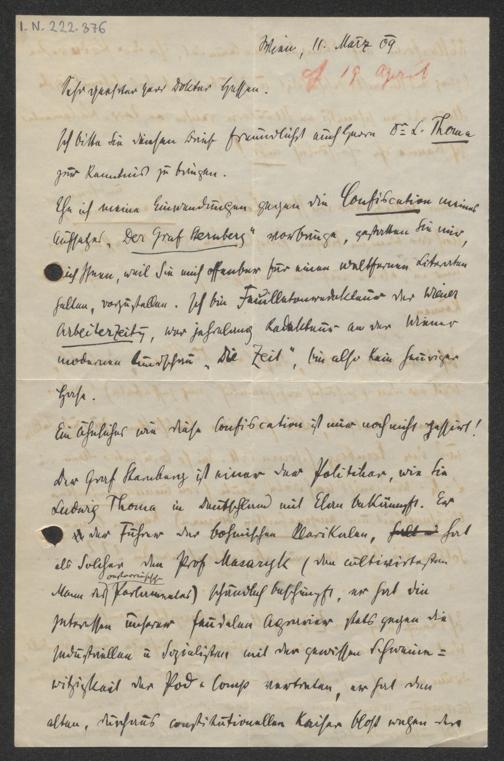 I.N. 222.376
Wien, 11. März 09
19 April
Sehr geehrter Herr Doktor Hessen.
Ich bitte Sie diesen Brief freundlichst auch Herrn Dr L. Thoma
zur Kenntnis zu bringen.
Ehe ich meine Einwendungen gegen die Confiscation meines
Aufsatzes „Der Graf Sternberg“ vorbringe, gestatten Sie mir,
mich Ihnen, weil Sie mich offenbar für einen weltfernen Literaten
halten, vorzustellen. Ich bin Feuilletonredakteur der Wiener
Arbeiterzeitg, war jahrelang Redakteur an der Wiener
modernen Rundschau „Die Zeit“, bin also kein heuriger
Hase.
Ein Ähnliches wie diese Confiscation ist mir noch nicht passiert!
Der Graf Sternberg ist einer der Politiker, wie sie
Ludwig Thoma in Deutschland mit Elan bekämpft. Er
der Führer der böhmischen Klerikalen, hat
als Solcher den Prof Masaryk (den cultiviertesten
Mann des österreichischen Parlamentes) schändlich beschimpft, er hat die
Interessen unserer feudalen Agrarier stets gegen die
Industriellen u Sozialisten mit der gewissen
der Pod &amp; Comp vertreten, er hat den
alten, durchaus constitutionellen Kaiser bloß wegen der